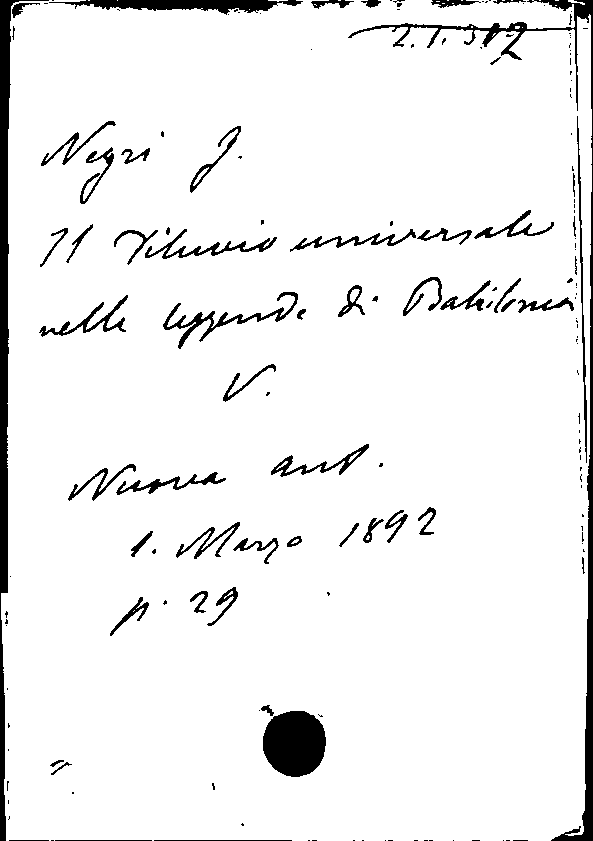 2.1.312
Negri G.
Il Diluvio universale
nelle leggende di Babilonia
V.
Nuova ant.
1. Marzo 1892
p. 29